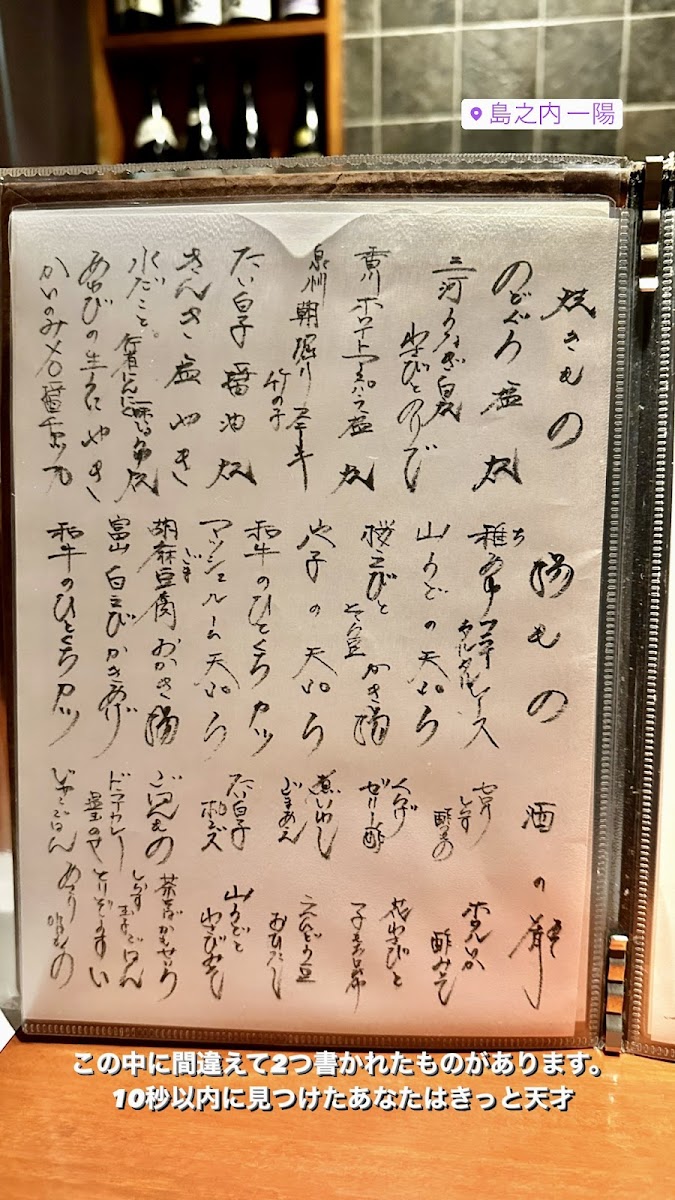 島之内一陽
焼きもの
のどぐろ 塩 焼
三河うなぎ白焼
わさびとのり
香川 ホワイトアスパラ塩 焼
泉州 朝堀り
竹の子
たい白子 醤油 焼
きんき 塩 やき
水だこと
行者にんにく
あわびの生うに やき
かいのみ
揚もの
稚あゆ フライ
タルタルソース
山うどの天ぷら
桜えびと
そら豆
かき揚
穴子の天ぷら
和牛のひとくちカツ
マッシュルーム天ぷら
胡麻豆腐 おかき揚
富山 白えびかきあげ
和牛のひとくちカツ
酒の肴
セロリ
しらす
酢のもの
ホタルいか
酢みそ
くらげ
ゼリー酢
花わさびと
子もち昆布
煮いわし
ごまあえ
えんどう豆
おひたし
たい白子
ポンズ
山うどと
わさびみそ
ごはんもの
茶そば
ドライカレー
しらす
玉子ごはん
じゃこごはん
この中に間違えて2つ書かれたものがあります。
10秒以内に見つけたあなたはきっと天才